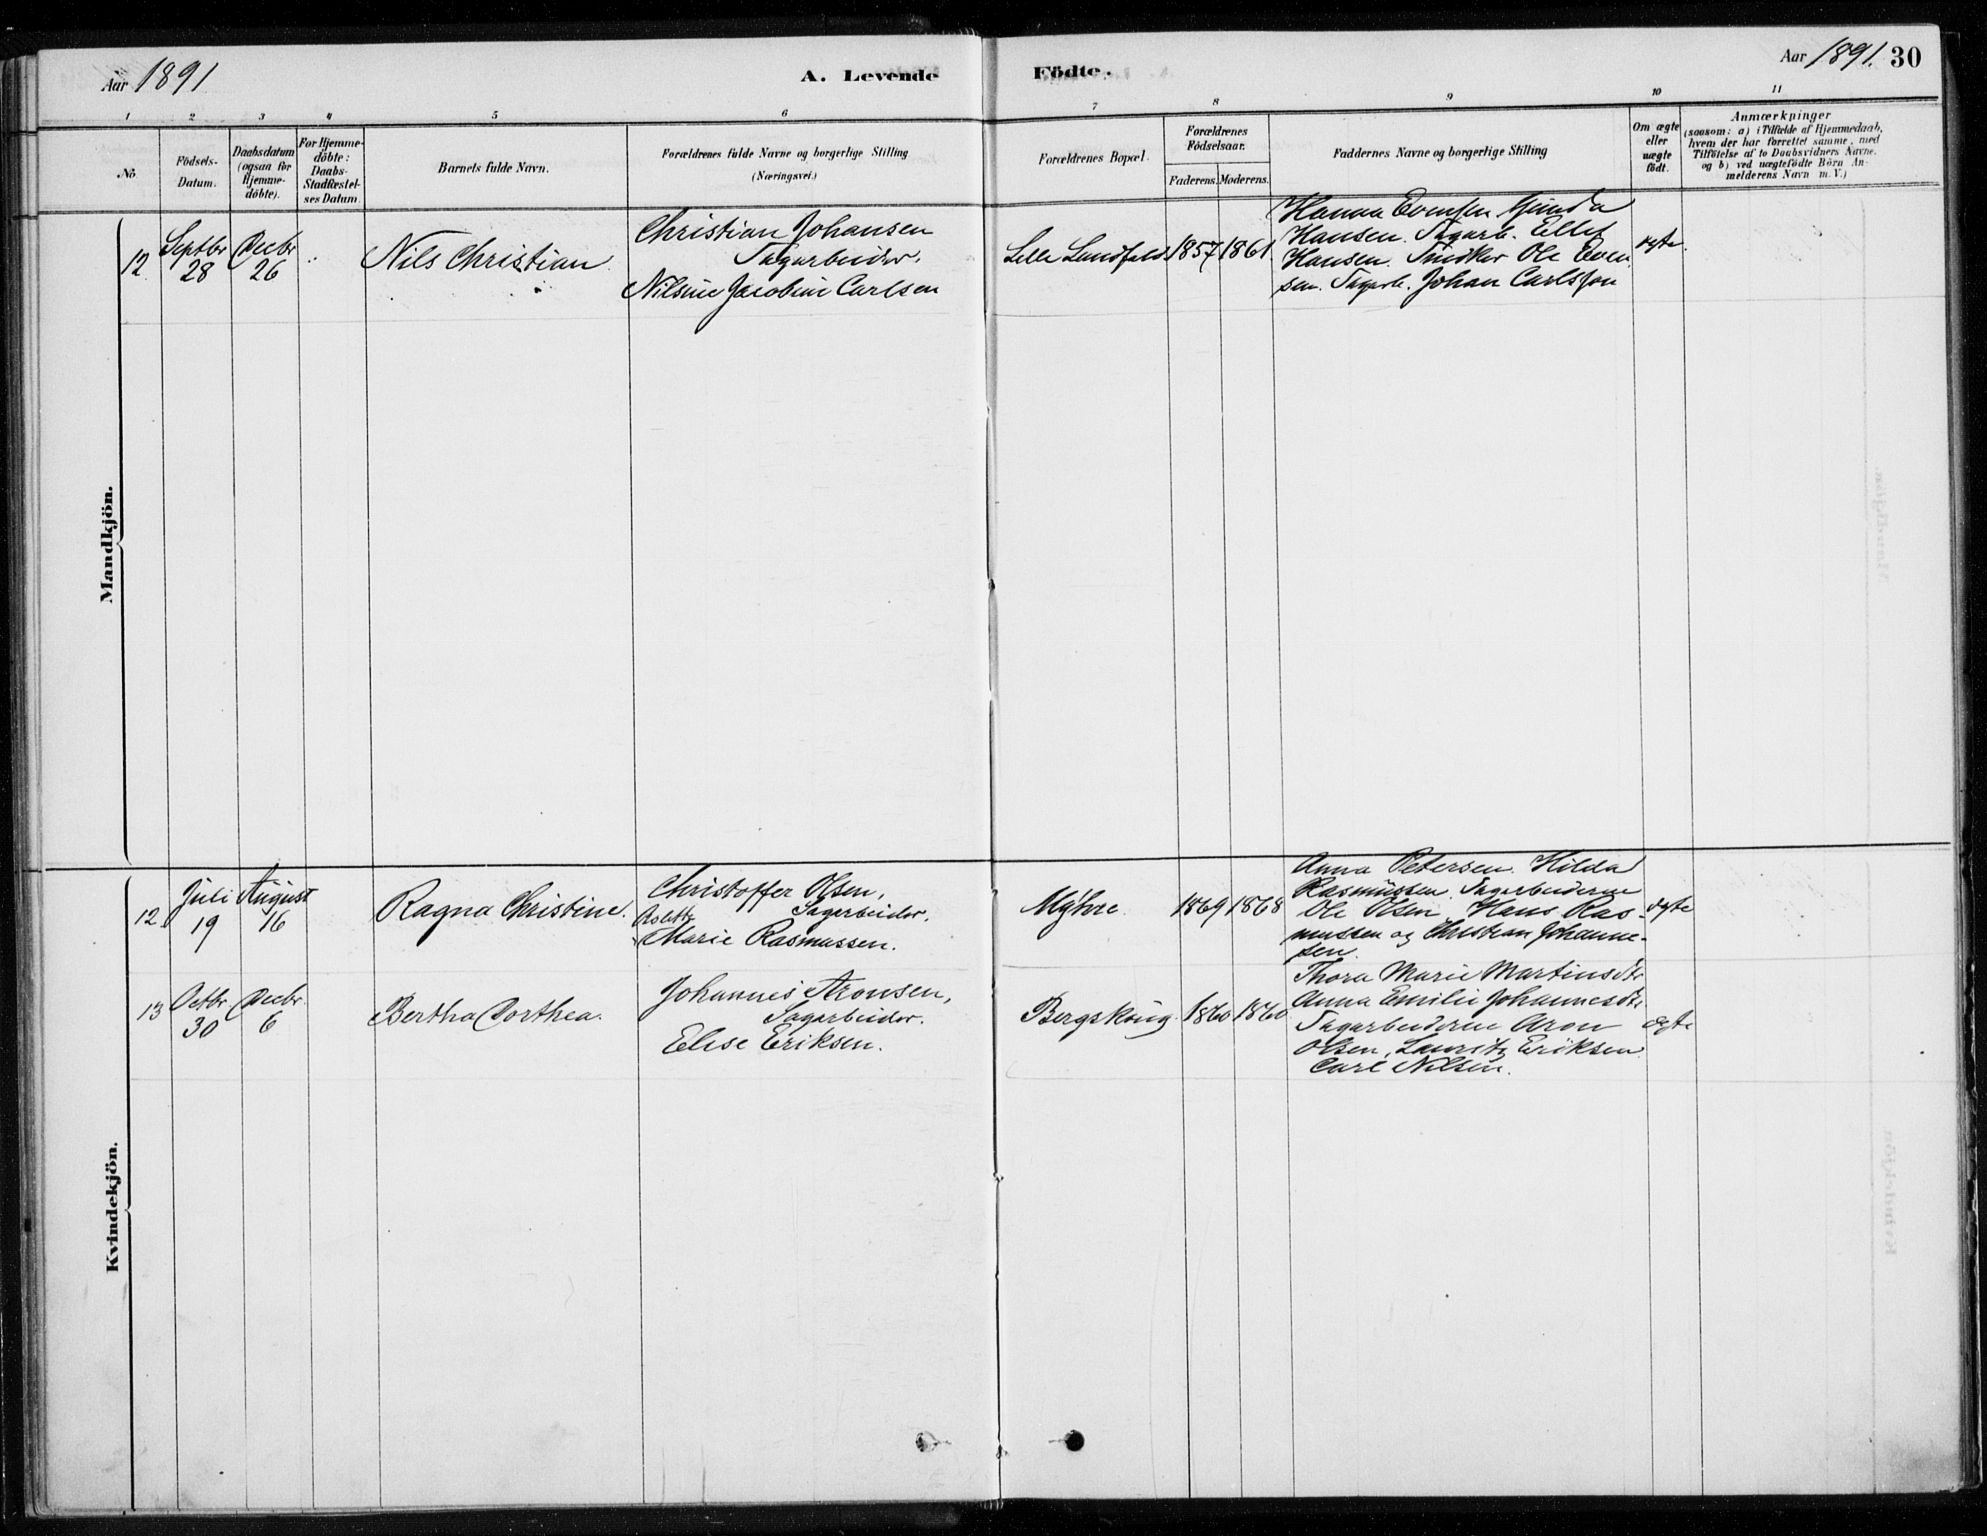 Aar 1891
A. Levende
Födte.
Aar 1891. 30
1 2 3 4 5 6 7 8 9 10 11
No
Födsels-
Datum.
Daabsdatum
(ogsaa for
Hjemme-
döbte).
For Hjemme-
döbte:
Daabs-
Stadfæstel-
ses Datum.
Barnets fulde Navn.
Forældrenes fulde Navne og borgerlige Stilling
(Næringsvei.)
Forældrenes Bopæl.
Forældrenes
Födselsaar.
Faderens. Moderens.
Faddernes Navne og borgerlige Stilling
Om ægte
eller
uægte
født.
Anmærkninger
(saasom: a) i Tilfælde af Hjemmedaab,
hvem der har forrettet samme, med
Tilföielse af to Daabsvidners Navne.
og b) ved uægtefödte Börn An-
melderens Navn m. V.)
Mandkjön.
12.
Septbr
28
Decbr
26
Nils Christian
Christian Johansen
Sagarbeider.
Nilsine Jacobine Carlsen
Lille Sundfeld
1857
1861
Hanna Evensen Gunda
Hansen. Sagarb. Ellef
Hansen. Snedker Ole Even
sen. Sagarb. Johan Carlsson
ægte.
Kvindekjön.
12.
Juli
19
August
16
Ragna Christine.
Christoffer Olsen,
Sagarbeider.
Marie Rasmussen.
Myhre.
1869
1868
Anna Petersen. Hilda
Rasmussen. Sagarbeiderne
Ole Olsen, Hans Ras-
mussen og Christian Johanne-
sen.
ægte
13
Octbr
30
Decbr.
6
Bertha Dorthea.
Johannes Aronsen,
Sagarbeider.
Elise Eriksen.
Bergskoug
1860
1860
Thora Marie Martinsdtr
Anna Emilie Johannesdtr
Sagarbeiderne Aron
Olsen, Lauritz Eriksen
Carl Nilsen.
ægte